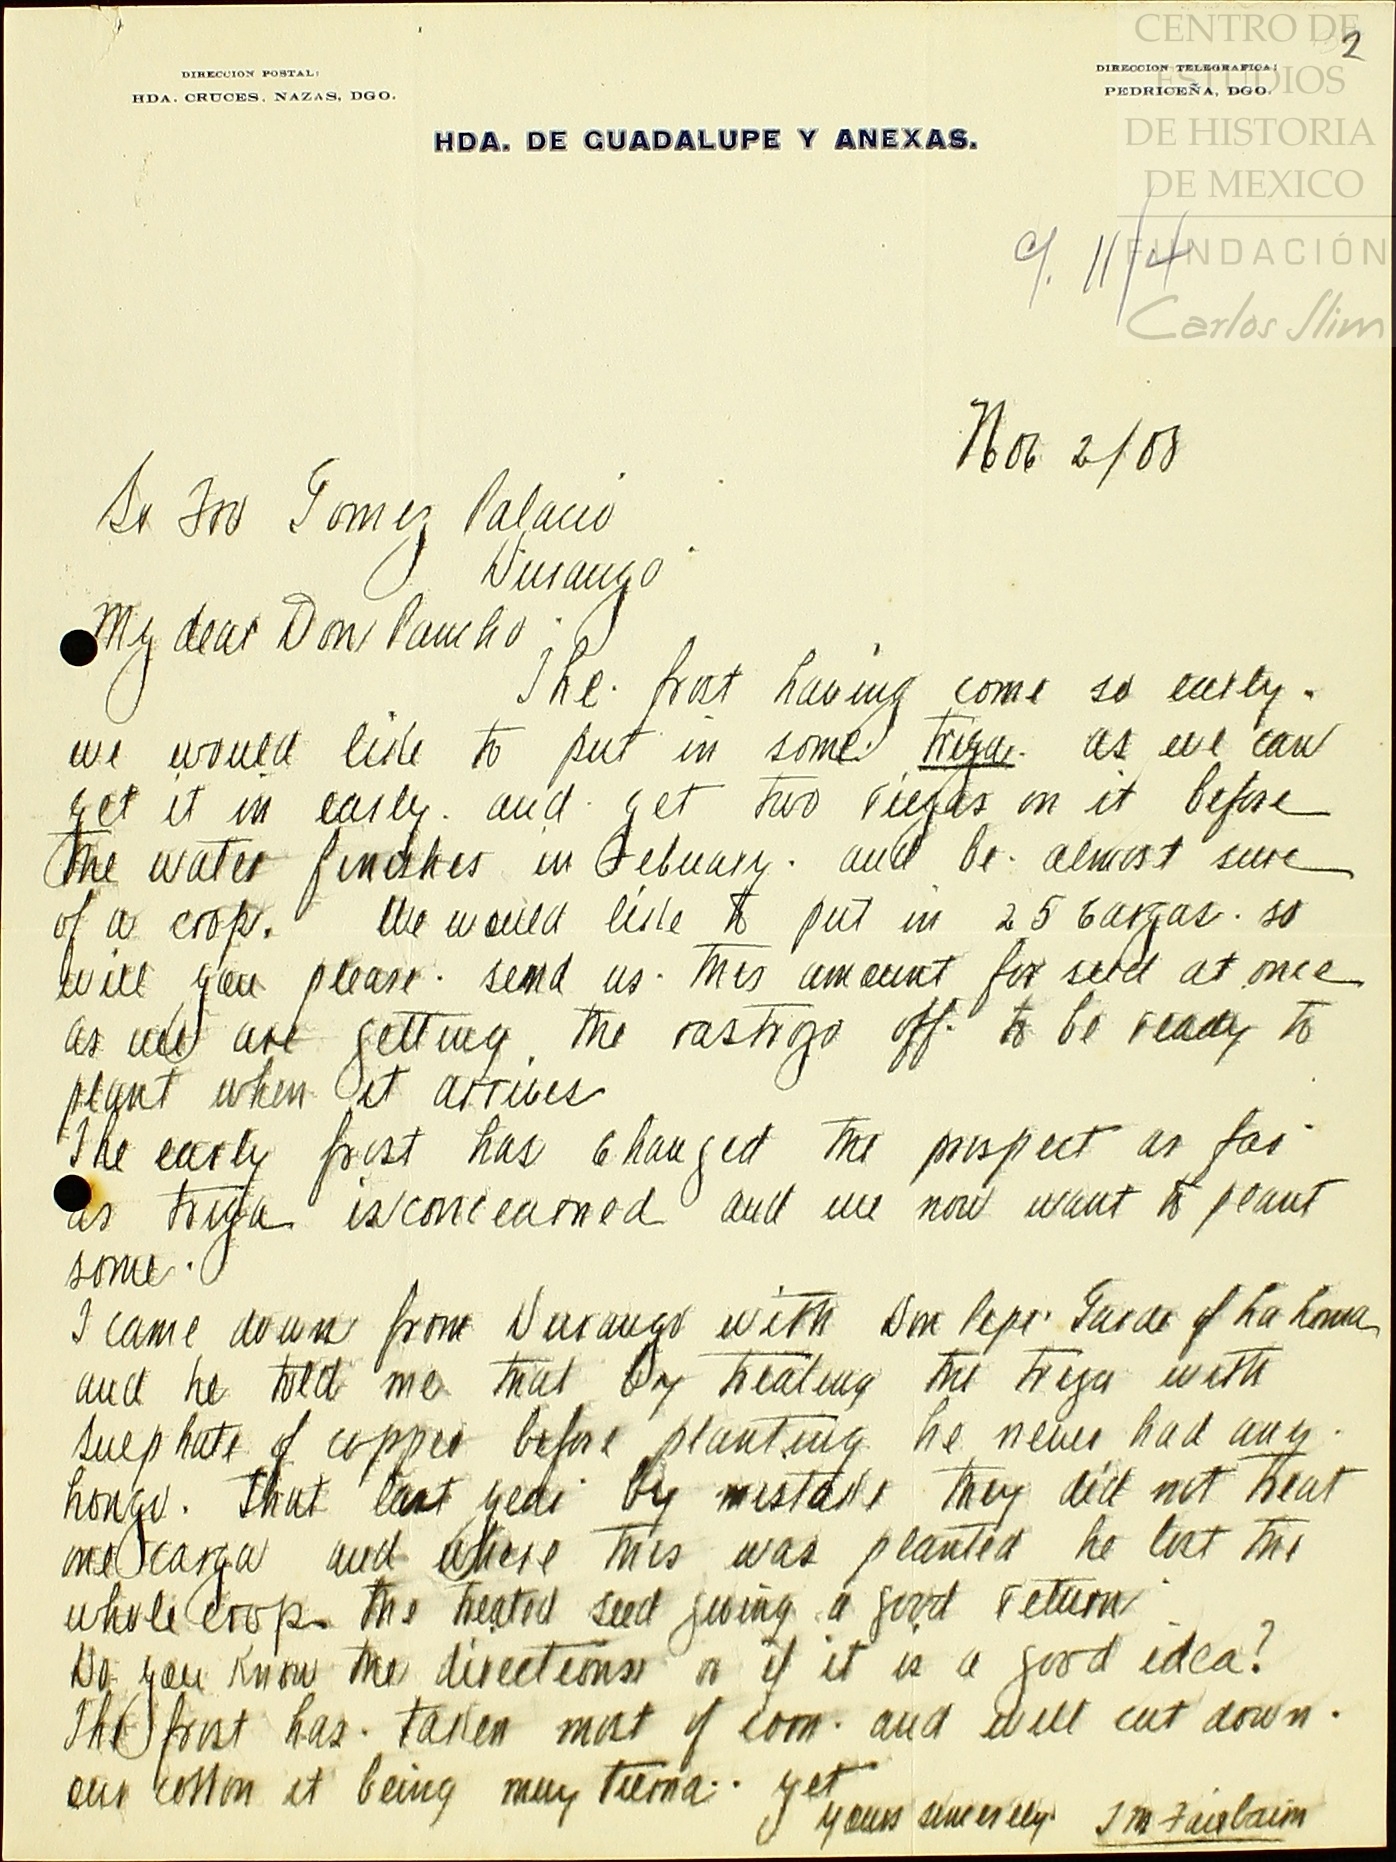 CENTRO DE
ESTUDIOS
DE HISTORIA
DE MEXICO
FUNDACIÓN
Carlos Slim
2
DIRECCION POSTAL:
HDA. CRUCES, NAZAS, DGO.
DIRECCION TELEGRAFICA:
PEDRICEÑA, DGO.
HDA. DE GUADALUPE Y ANEXAS.
11/4
Nov 2/08
Sr Fco Gomez Palacio
Durango
My dear Don Pancho
The frost having come so early.
we would like to put in some triga. as we can
get it in early. and get two riegas on it before
the water finishes in Febuary. and be almost sure
of a crop. We would like to put in 25 cargas. so
will you please. send us. this amount for seed at once
as we are getting the rastrojo off. to be ready to
plant when it arrives
The early frost has changed the prospect as far
as triga is concearned and we now want to plant
some.
I came down from Durango with Don Pepe. of La Loma
and he told me that by treating the triga with
Sulphate of copper before planting he never had any.
hongo. That last year by mistake they did not treat
one carga and where this was planted he lost the
whole crop. the treated seed giving a good return
Do you know the directions or if it is a good idea?
The frost has. taken most of corn. and will cut down.
our cotton it being muy tierna. yet
yours sincerely J M Fairbairn